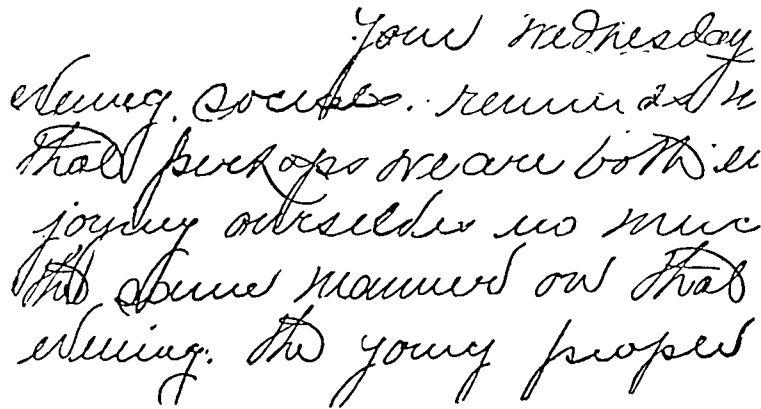 Your Wednesday
evening socials. reminds m
that perhaps we are both en
joying ourselves in muc
the same manner on that
evening. the young people